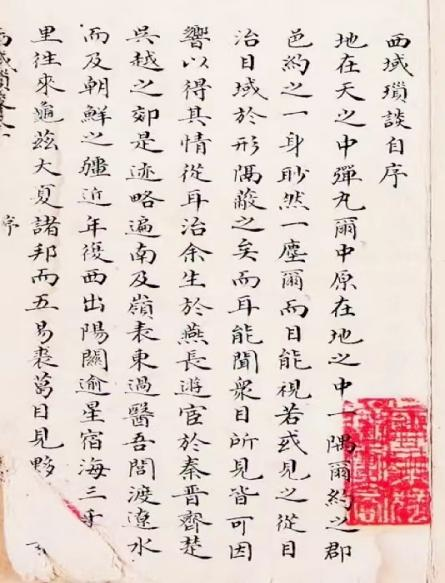 西域瑣談自序
地在天之中彈丸爾中原在地之中一隅爾約之郡
邑約之一身眇然一塵爾而目能視若或見之從目
治目域於形隅蔽之矣而耳能聞衆目所見皆可因
響以得其情從耳治余生於燕長遊宦於秦晉齊楚
吳越之郊是迹略遍南及嶺表東過醫吾閭渡遼水
而及朝鮮之疆近年復西出陽關逾星宿海三千
里往來龜茲大夏諸邦而五易裘葛目見夥
西域瑣談 序